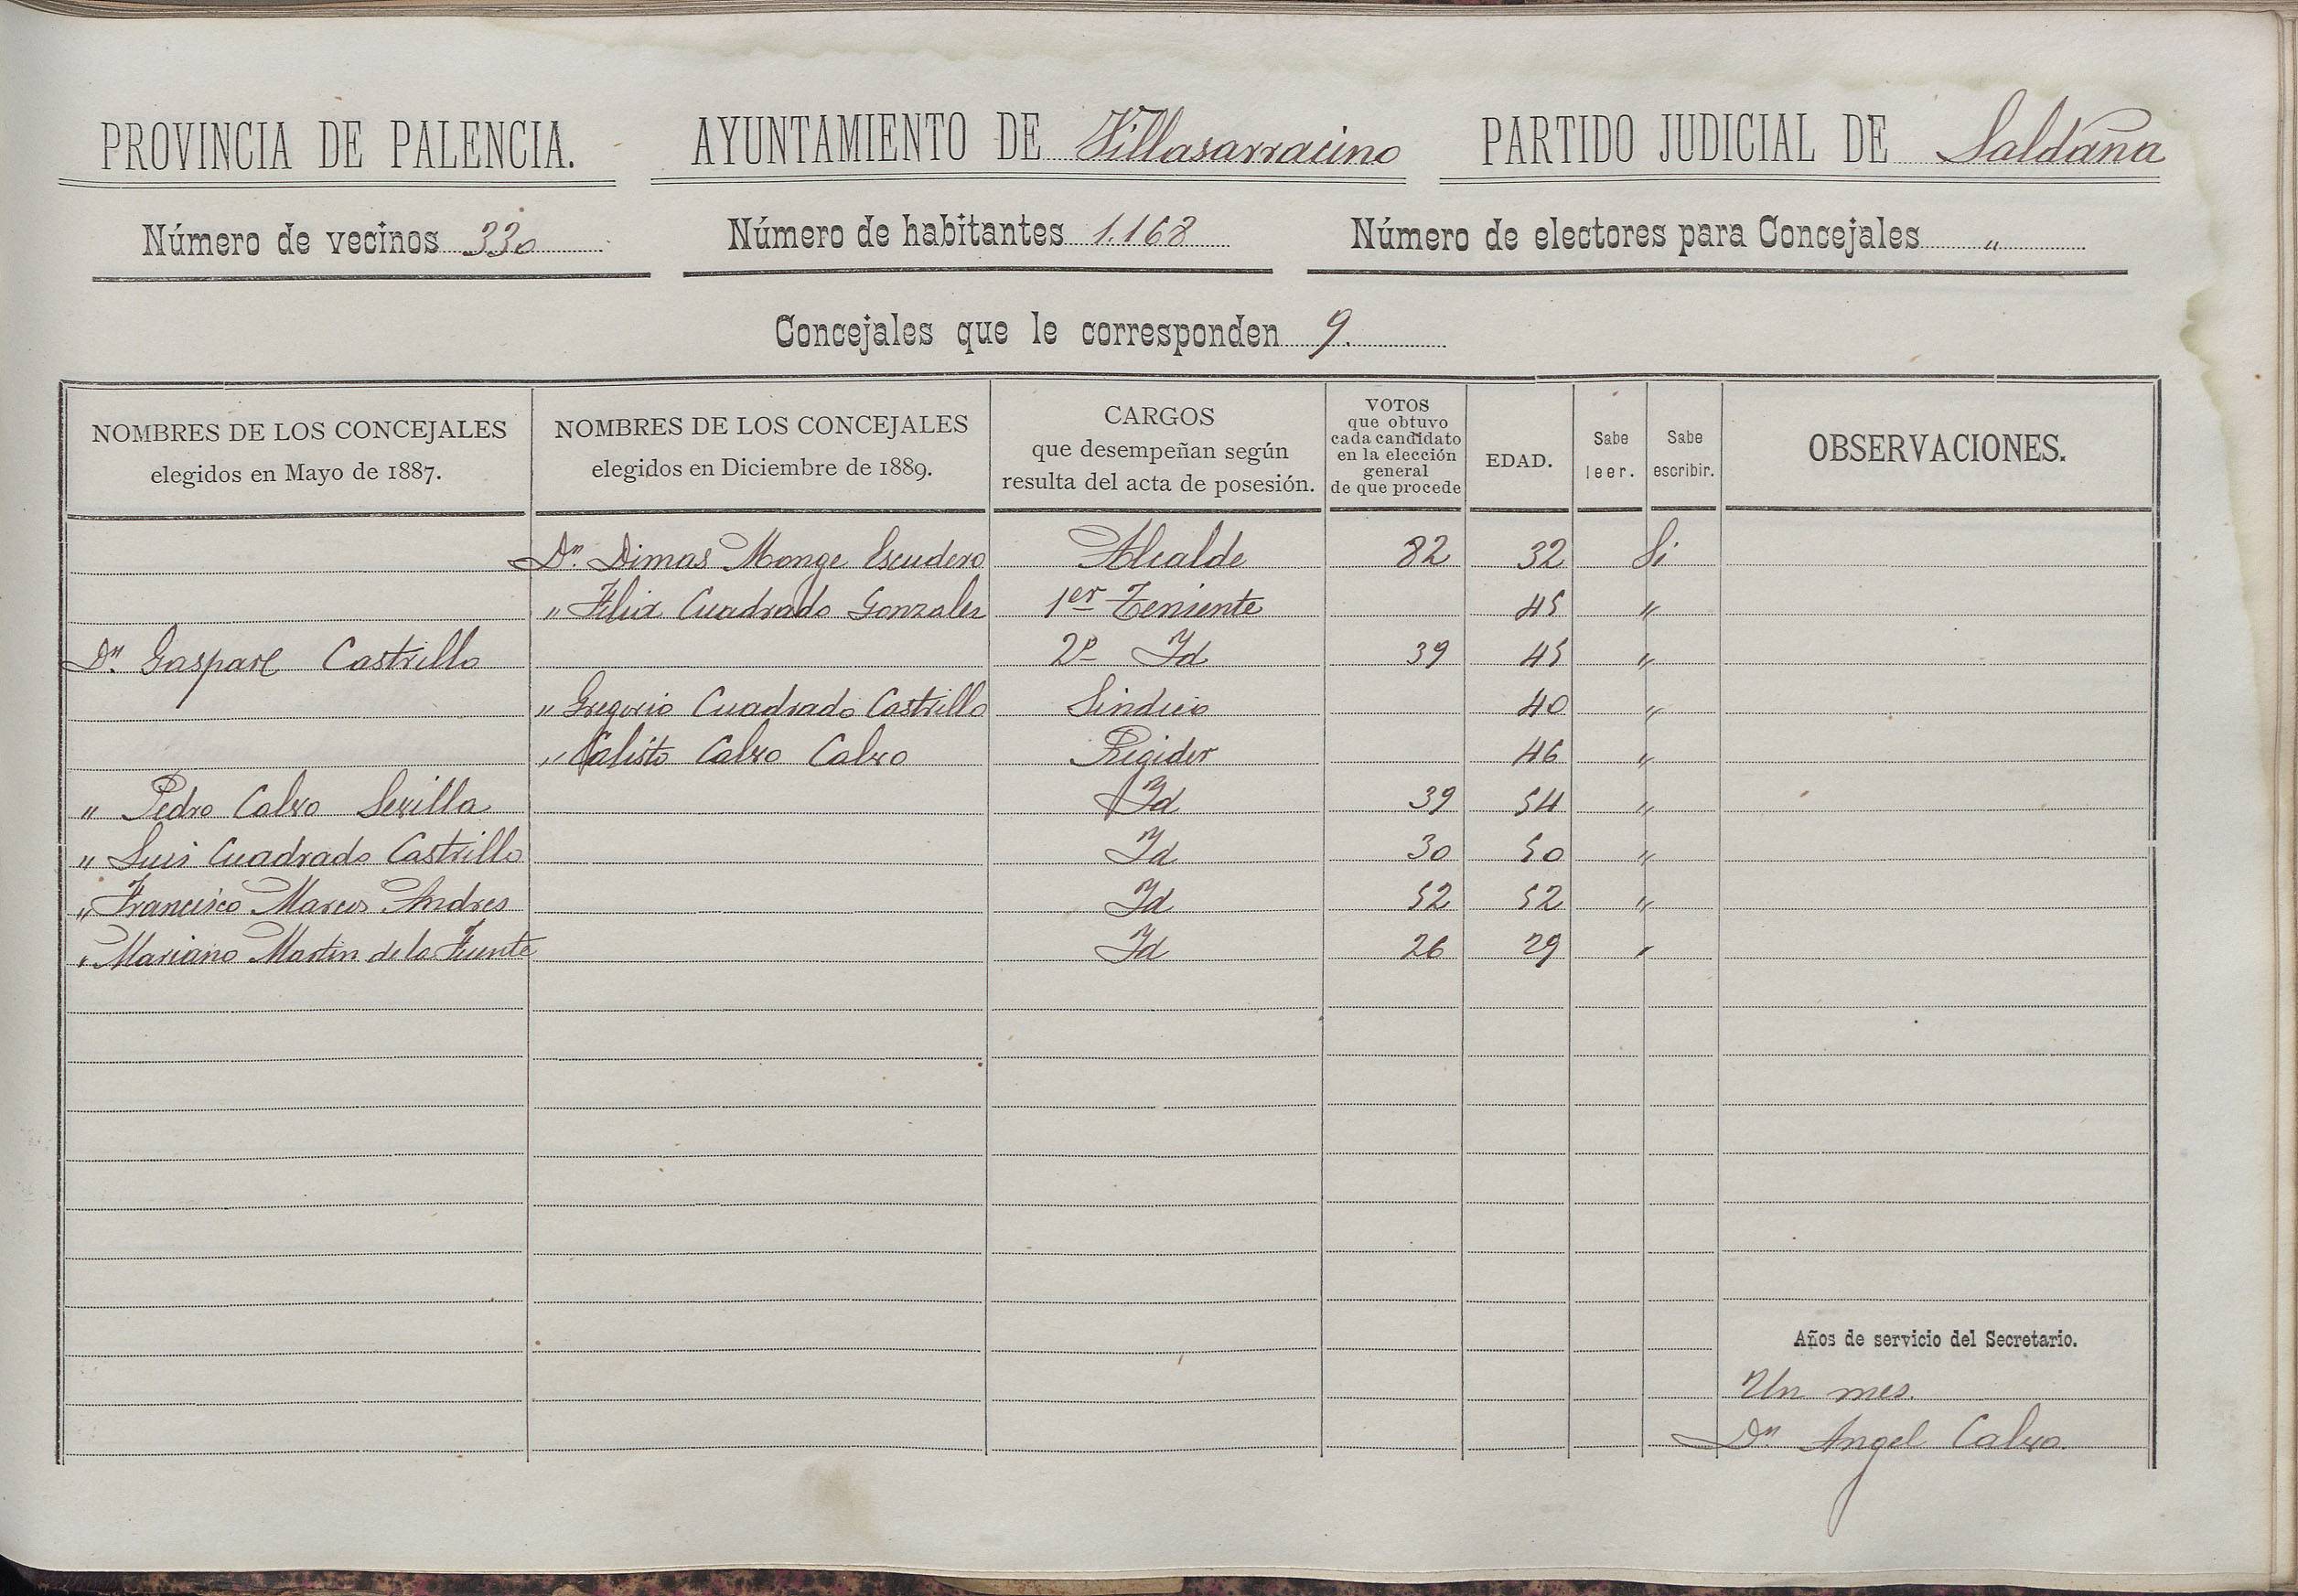 PROVINCIA DE PALENCIA. AYUNTAMIENTO DE Villasarracino PARTIDO JUDICIAL DE Saldaña
Número de vecinos 330 Número de habitantes 1.168 Número de electores para Concejales "
Concejales que le corresponden 9.
NOMBRES DE LOS CONCEJALES
elegidos en Mayo de 1887.
NOMBRES DE LOS CONCEJALES
elegidos en Diciembre de 1889.
CARGOS
que desempeñan según
resulta del acta de posesión.
VOTOS
que obtuvo
cada candidato
en la elección
general
de que procede
EDAD.
Sabe
leer.
Sabe
escribir.
OBSERVACIONES.
Dn. Dimas Monge Escudero Alcalde 82 32 Si
" Felix Cuadrado Gonzalez 1er Teniente 45 "
Dn. Gaspar Castrillo 2º Id 39 45 "
" Gregorio Cuadrado Castrillo Sindico 40 "
" Calisto Calvo Calvo Regidor 46 "
" Pedro Calvo Sevilla Id 39 54 "
" Luis Cuadrado Castrillo Id 30 50 "
" Francisco Marcos Andres Id 52 52 "
" Mariano Martin de la Fuente Id 26 29 "
Años de servicio del Secretario.
Un mes.
Dn Angel Calvo.